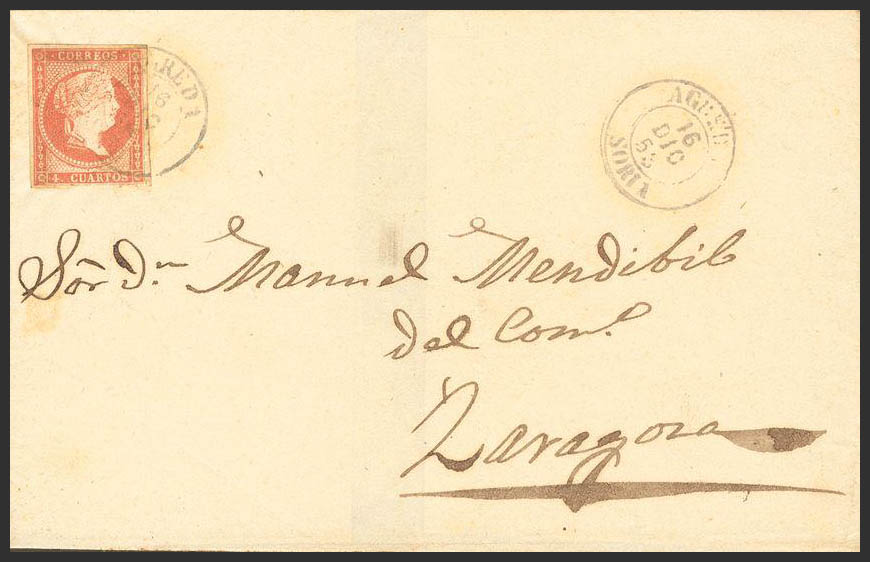 CORREOS
4. CUARTOS
REDA
16
AGREDA
16
DIC
SORIA
Sōr Dn Manuel Mendibil
del Com.o
Zaragoza